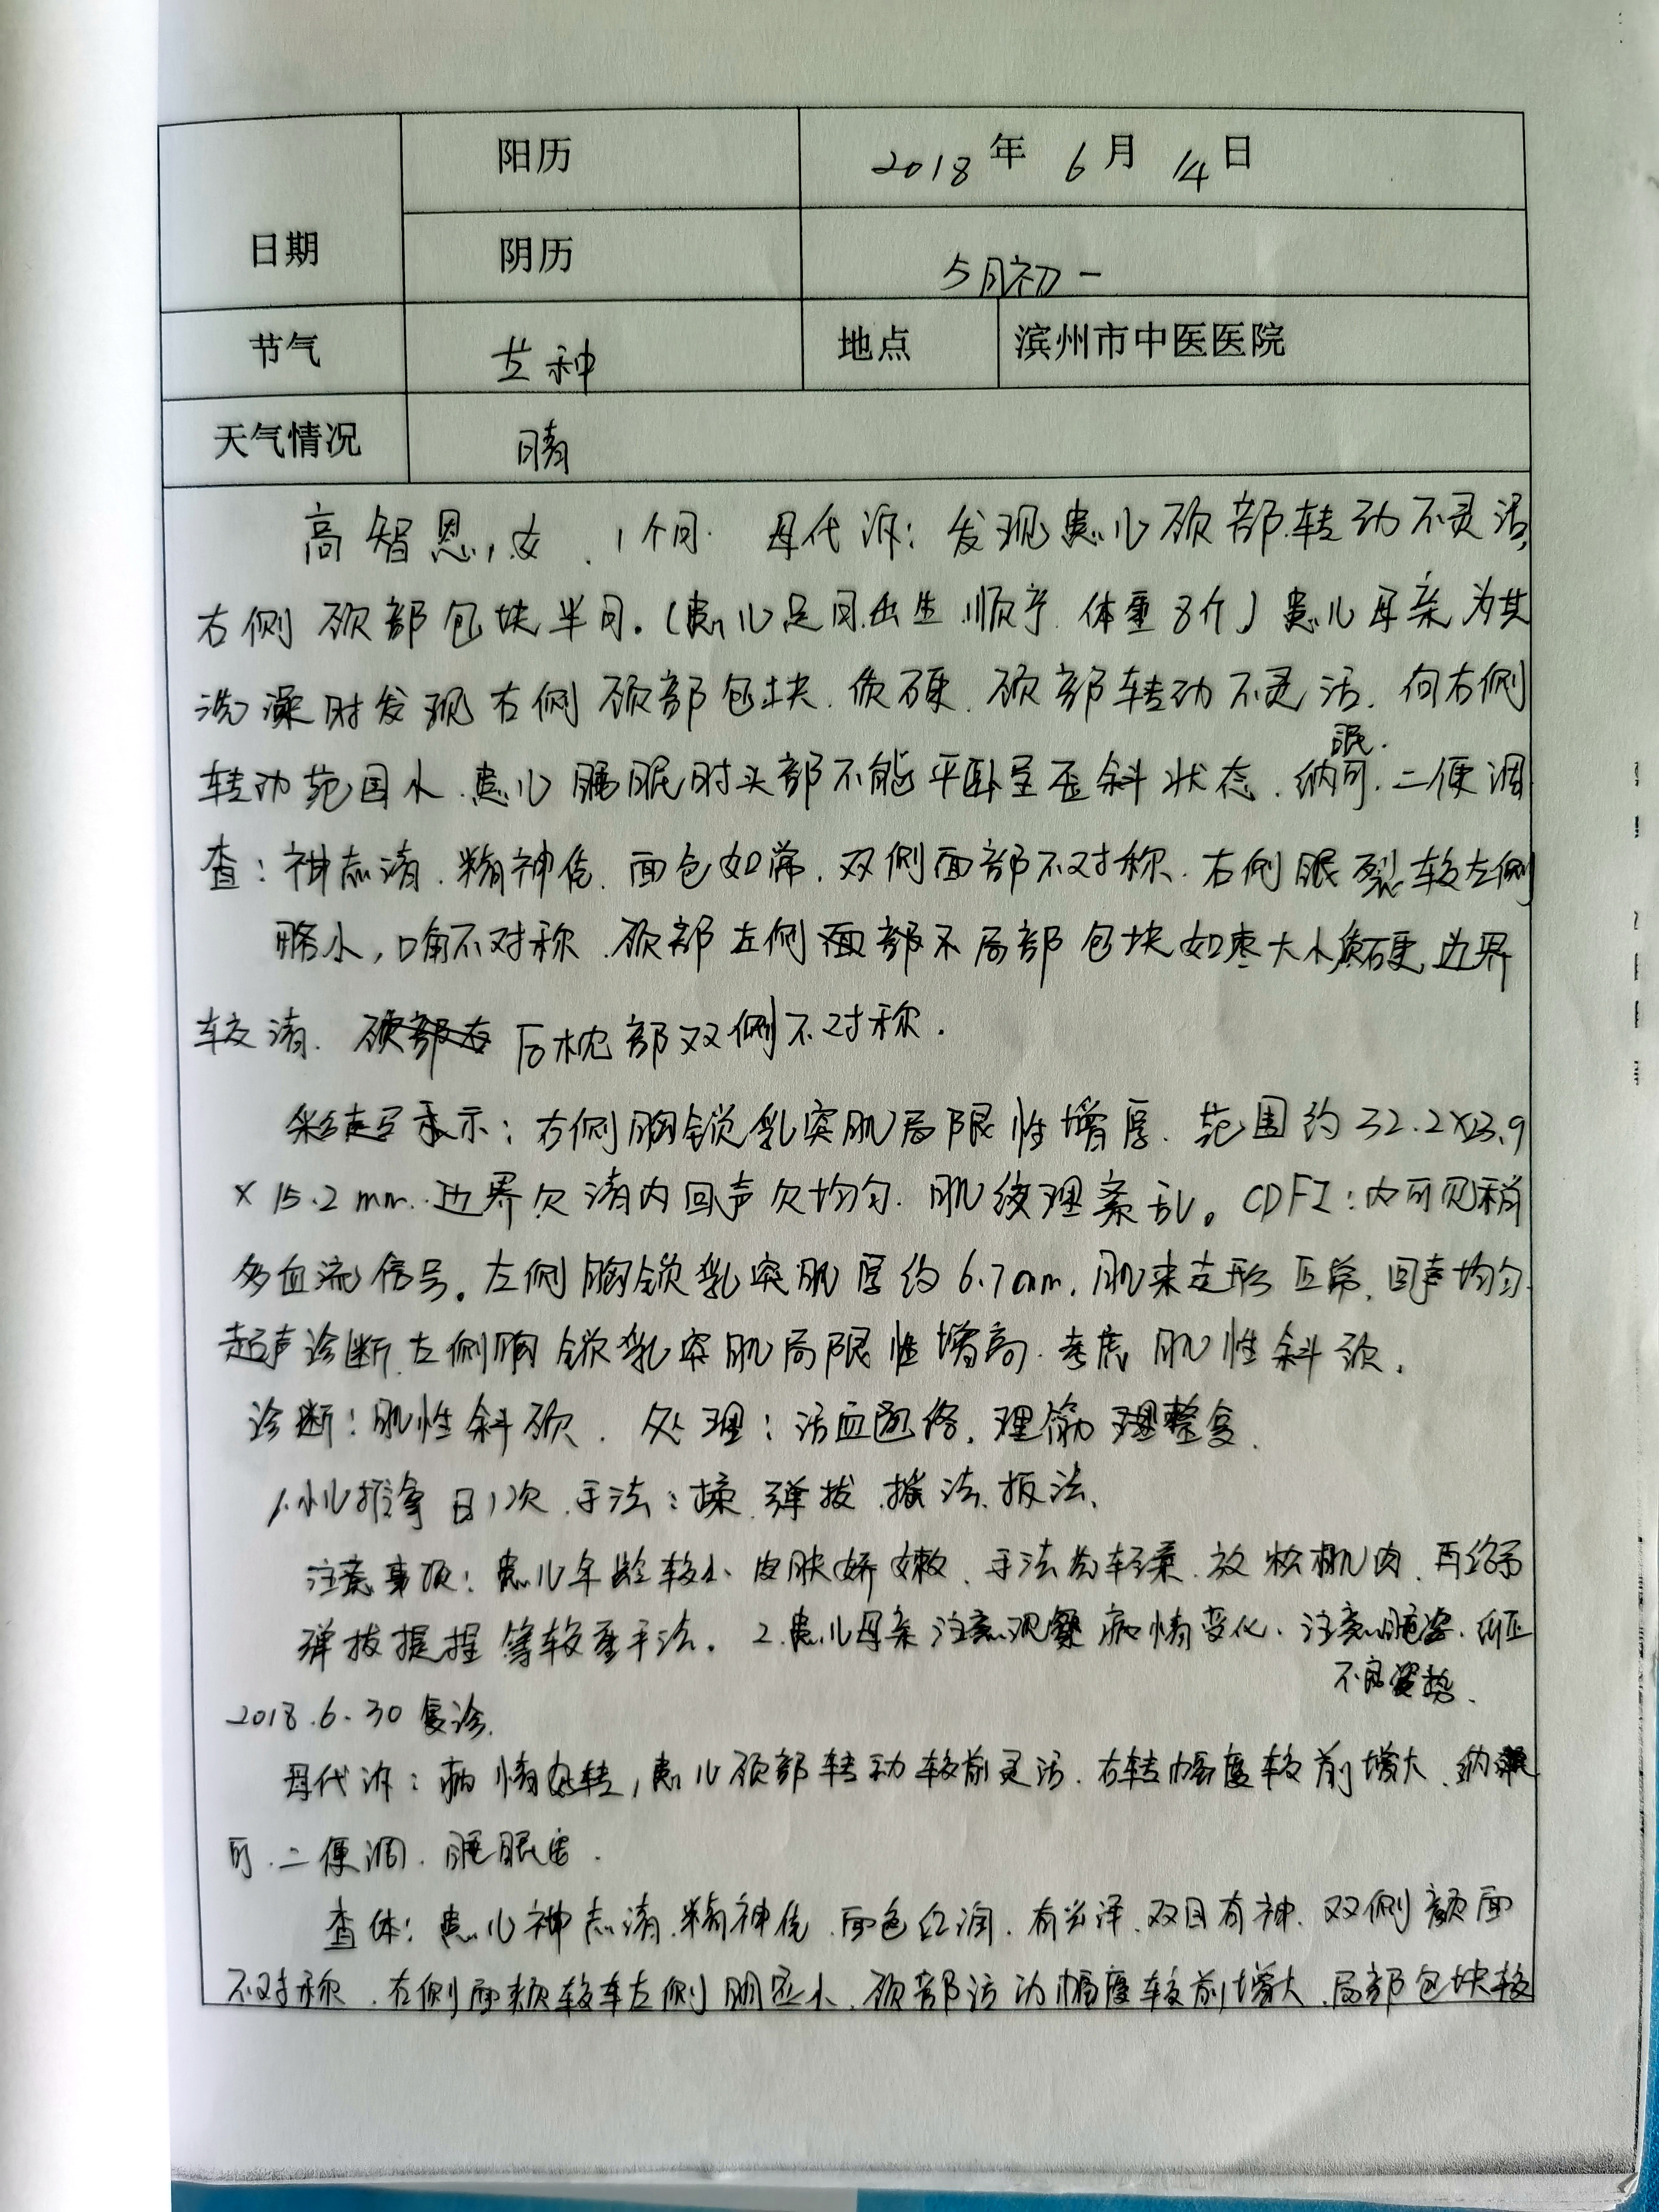 阳历 2018年 6月 14日
日期
阴历 5月初一
节气 芒种 地点 滨州市中医医院
天气情况 晴
高智恩,女、1个月. 母代诉:发现患儿颈部转动不灵活,
右侧颈部包块半月。(患儿足月出生.顺产.体重8斤)患儿母亲为其
洗澡时发现右侧颈部包块.质硬.颈部转动不灵活.向右侧
转动范围小.患儿睡眠时头部不能平卧呈歪斜状态.纳眠可.二便调
查:神志清.精神佳.面色如常.双侧面部不对称.右侧眼裂较左侧
略小,口角不对称.颈部左侧面部不局部包块如枣大小质硬,边界
较清. 后枕部双侧不对称.
彩超示:右侧胸锁乳突肌局限性增厚.范围约32.2×23.9
×15.2mm.边界欠清内回声欠均匀.肌纹理紊乱。CDFI:内可见稍
多血流信号。左侧胸锁乳突肌厚约6.7mm,肌束走形正常,回声均匀.
超声诊断.左侧胸锁乳突肌局限性增高.考虑肌性斜颈.
诊断:肌性斜颈. 处理:活血通络.理筋整复.
1.小儿推拿 日1次.手法:揉.弹拨.摇法.扳法.
注意事项:患儿年龄较小、皮肤娇嫩、手法为轻柔.放松肌肉.再给予
弹拨提捏等较重手法。2.患儿母亲注意观察病情变化.注意睡姿.纠正
不良姿势.
2018.6.30复诊.
母代诉:病情好转,患儿颈部转动较前灵活.右转幅度较前增大、纳
可.二便调.睡眠安.
查体:患儿神志清.精神佳.面色红润.有光泽.双目有神.双侧颜面
不对称.右侧面颊较左侧明显小.颈部活动幅度较前增大.局部包块较